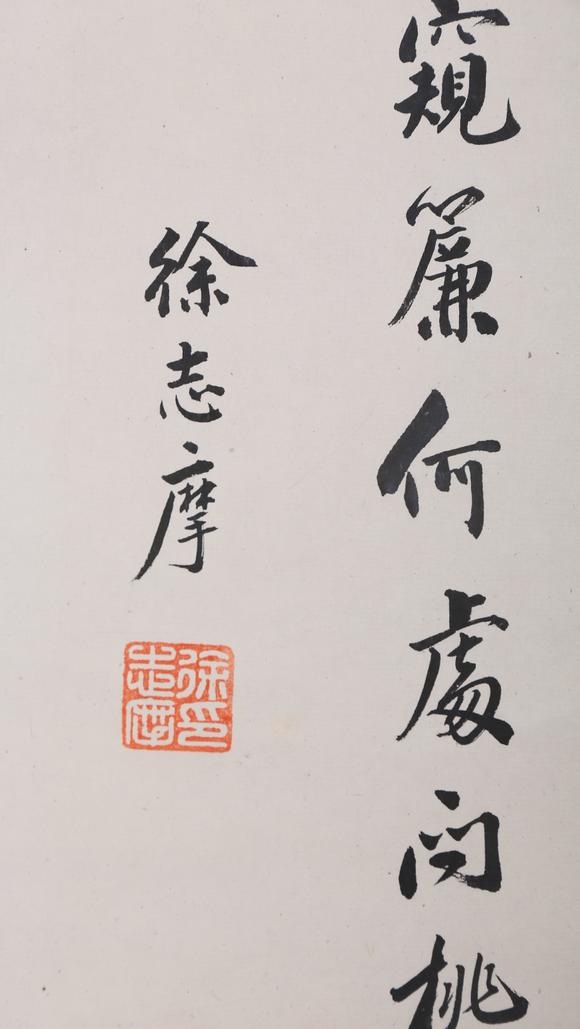 窺簾何處問桃
徐志摩
徐印志摩